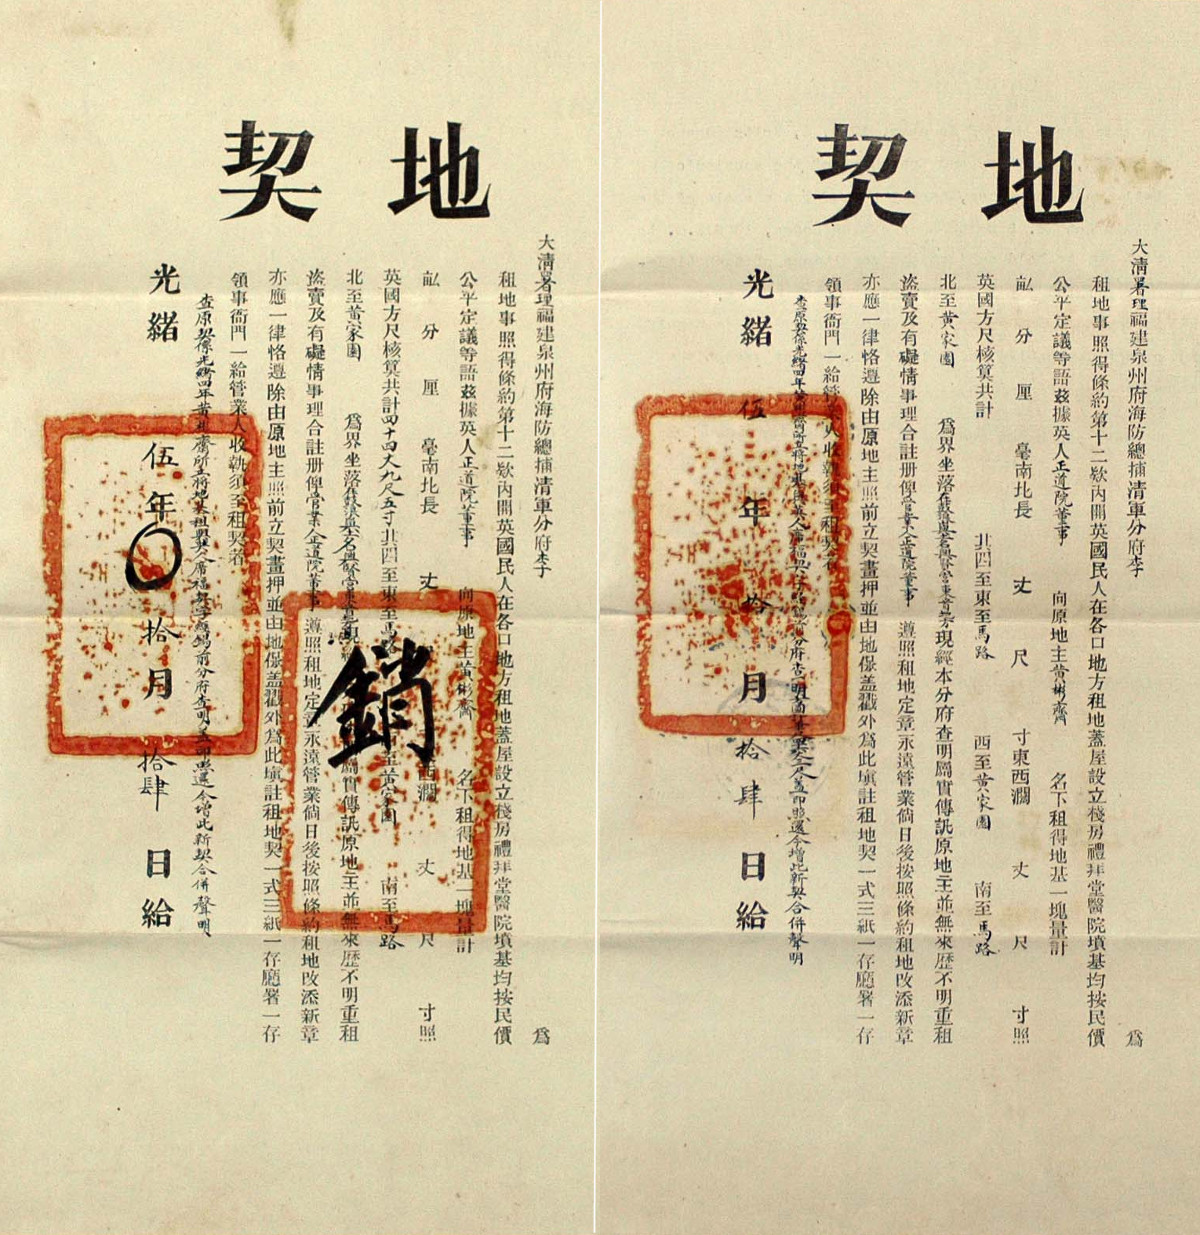 地契
大清署理福建泉州府海防總捕清軍分府李 為
租地事照得條約第十二欵內開英國民人在各口地方租地蓋屋設立棧房禮拜堂醫院墳基均按民價
公平定議等語茲據英人正道院董事 向原地主黃彬齋 名下租得地基一塊量計
畝 分 厘 毫南北長 丈 西濶 丈 尺 寸照
英國方尺核算共計四十四丈九尺五寸 四至東至馬路 至黃家園 南至馬路
北至黃家園 為界坐落 現 屬實傳訊原地主並無來歷不明重租
盜賣及有礙情事理合註册俾管業人正道院董事 遵照租地定章永遠管業倘日後按照條約租地改添新章
亦應一律恪遵除由原地主照前立契畫押並由地保盖戳外為此填註租地契一式三紙一存廳署一存
領事衙門一給管業人收執須至租契者
查原契係光緒四年黃彬齋所立將地基租與英人 前分府查明 印照還今增此新契合併聲明
光緒伍年拾月拾肆日給
銷
地契
大清署理福建泉州府海防總捕清軍分府李 為
租地事照得條約第十二欵內開英國民人在各口地方租地蓋屋設立棧房禮拜堂醫院墳基均按民價
公平定議等語茲據英人正道院董事 向原地主黃彬齋 名下租得地基一塊量計
畝 分 厘 毫南北長 丈 尺 寸東西濶 丈 尺 寸照
英國方尺核算共計 四至東至馬路 西至黃家園 南至馬路
北至黃家園 為界坐落 現經本分府查明屬實傳訊原地主並無來歷不明重租
盜賣及有礙情事理合註册俾管業人正道院董事 遵照租地定章永遠管業倘日後按照條約租地改添新章
亦應一律恪遵除由原地主照前立契畫押並由地保盖戳外為此填註租地契一式三紙一存廳署一存
領事衙門一給管業人收執須至租契者
查原契係光緒四年 分府查明 蓋印照還今增此新契合併聲明
光緒伍年拾月拾肆日給